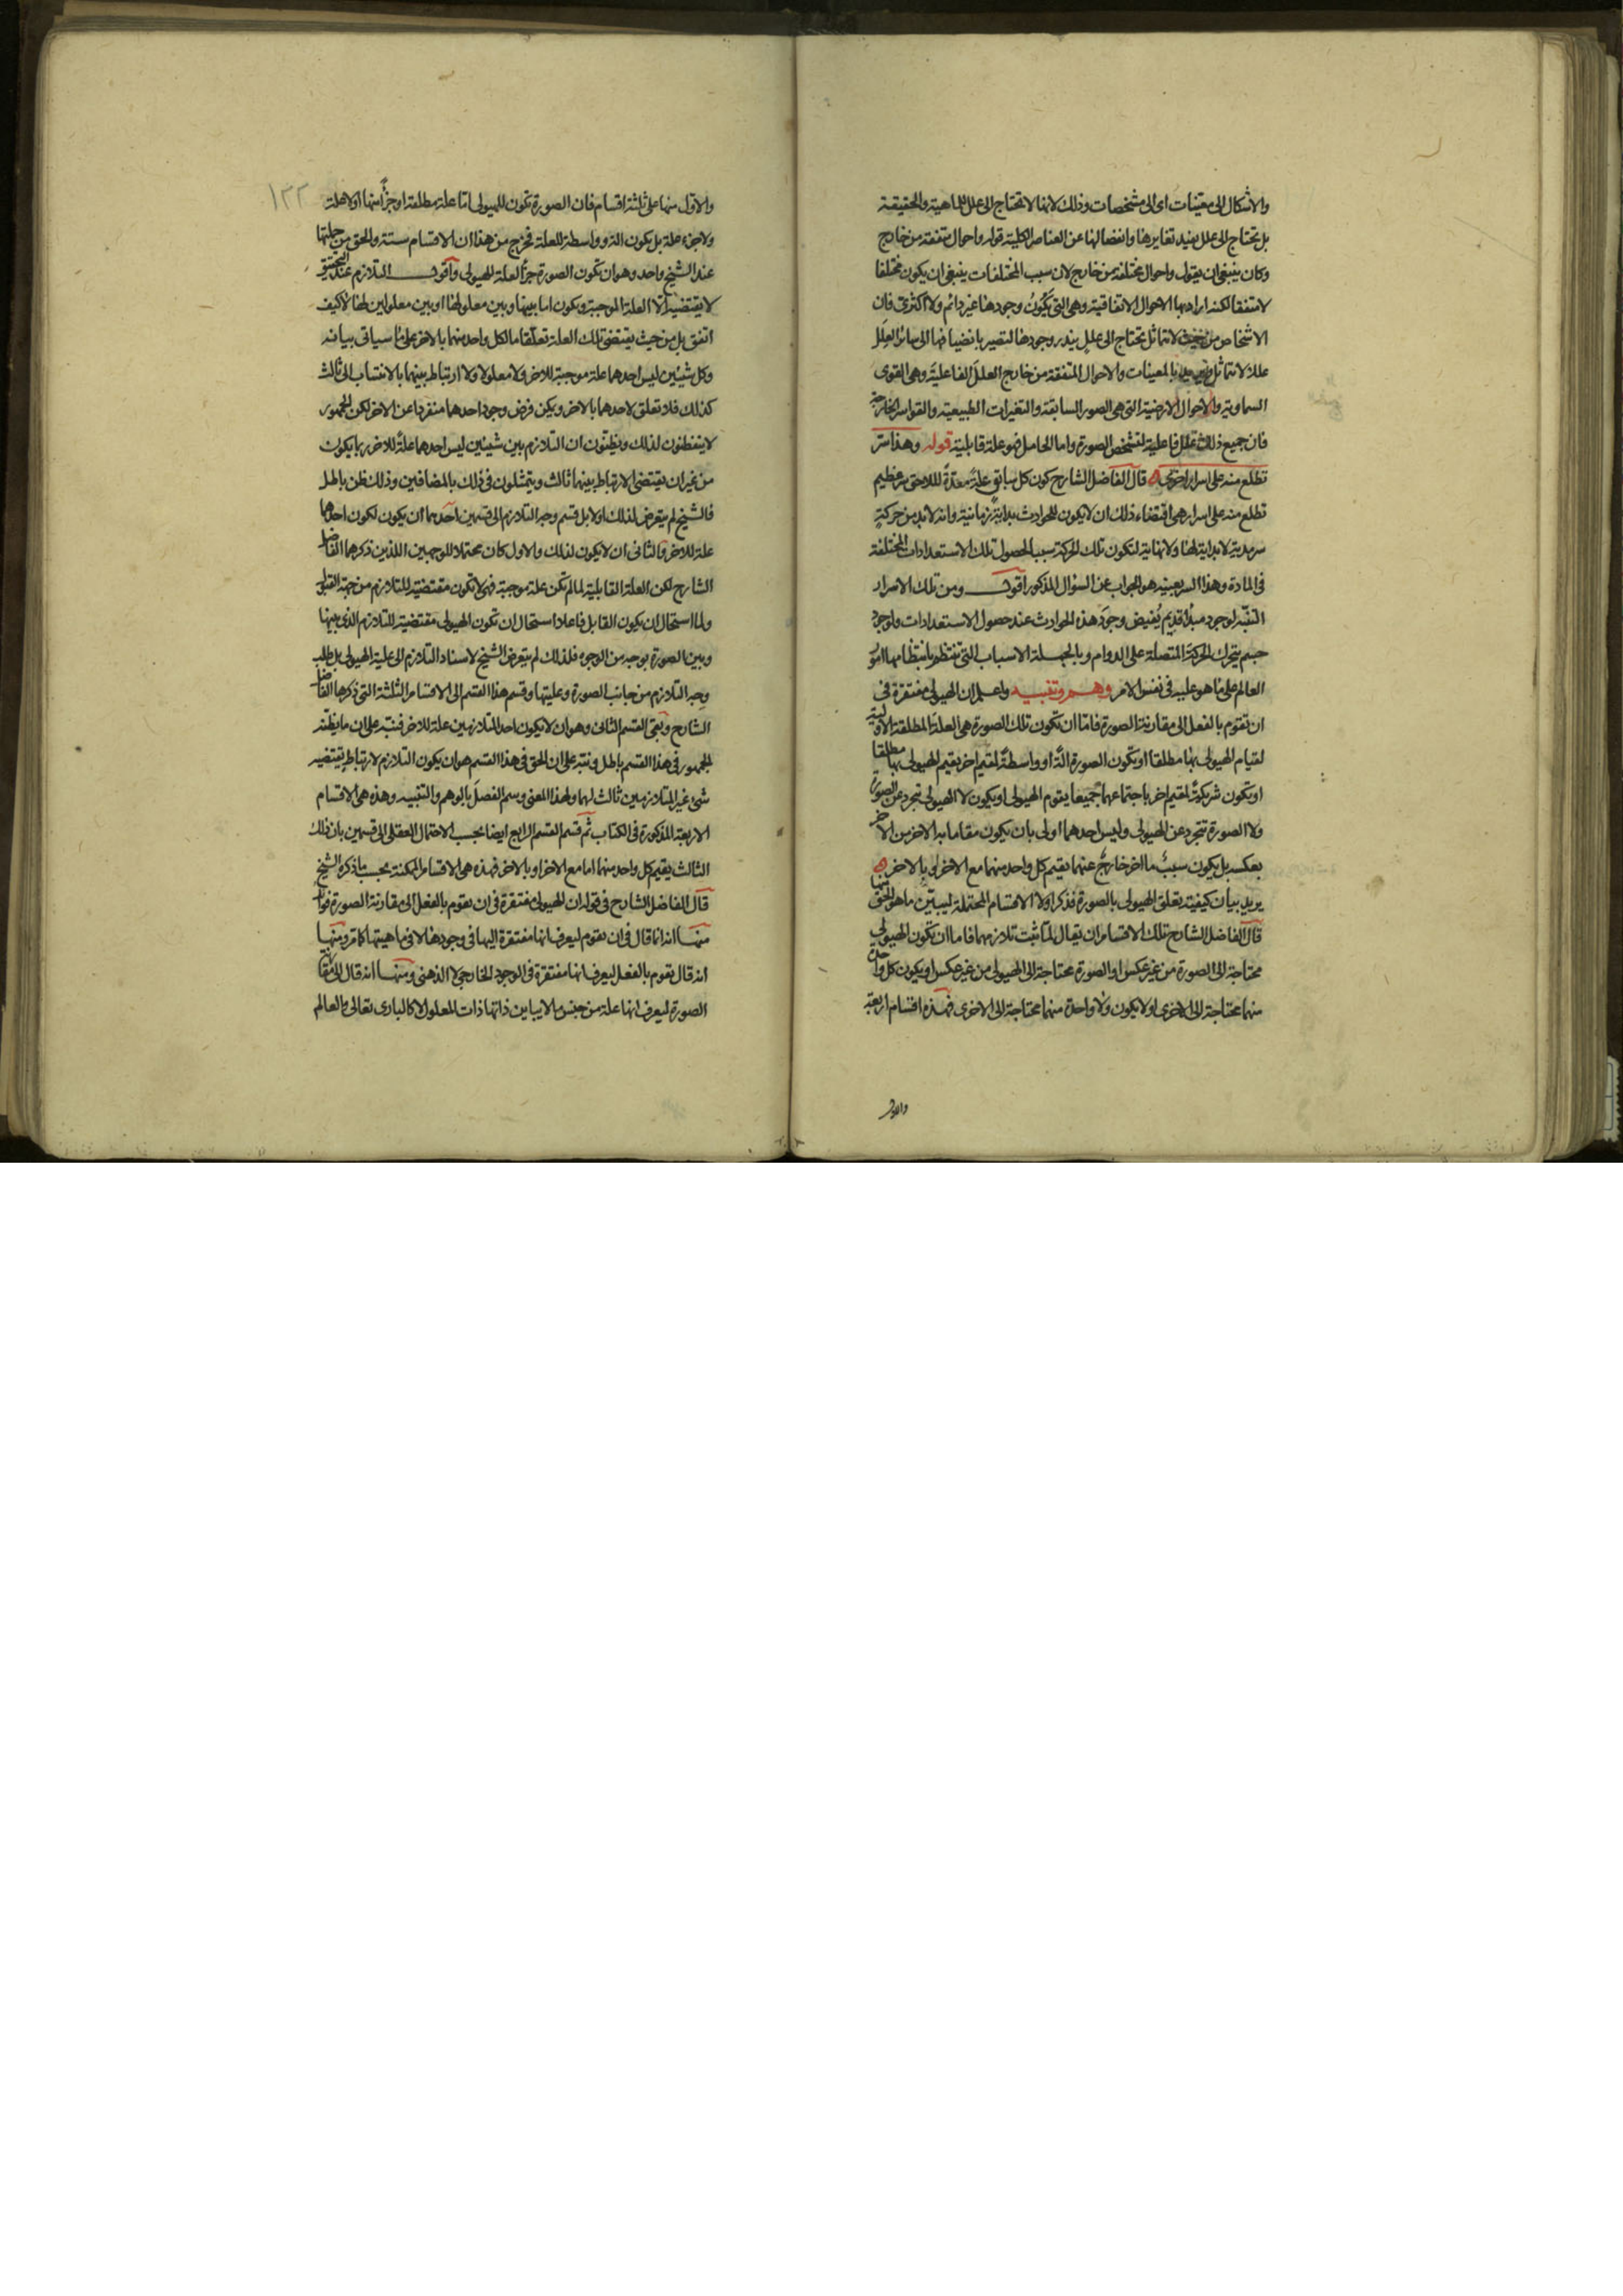 والاشكال الى معينات اى الى مشخصات وذلك لانها لا تحتاج الى علل للماهية والحقيقة
بل تحتاج الى علل يفيد تغايرها وانفصالها عن العناصر الكلية قوله واحوال متفقة من خارج
وكان ينبغى ان يقول واحوال مختلفة من خارج لان سبب المختلفات ينبغى ان يكون مختلفا
لا متفقا لكنه اراد بها الاحوال الاتفاقية وهى التى يكون وجودها غير دائم ولا اكثرى فان
الاشخاص من حيث لا تتماثل تحتاج الى علل يندر وجودها لتصير بانضيافها الى سائر العلل
عللا لا تتماثل بالمعينات والاحوال المتفقة من خارج العلل الفاعلية وهى القوى
السماوية والاحوال الارضية التى هى الصور السابقة والتغيرات الطبيعية والقواسر الخارجة
فان جميع ذلك علل فاعلية لتشخص الصورة واما الحامل فهو علة قابلية قوله وهذا سر
تطلع منه على اسرار اخرى ه قال الفاضل الشارح كون كل سابق علة معدة للاحق سر عظيم
تطلع منه على اسرار هى اقتضاء ذلك ان لا يكون للحوادث بداية زمانية وانه لا بد من حركة
سرمدية لا بداية لها ولا نهاية لتكون تلك الحركة سبب الحصول تلك الاستعدادات المختلفة
فى المادة وهذا السر بعينه هو الجواب عن السؤال المذكور اقول ومن تلك الاسرار
التنبه لوجود مبدأ قديم يفيض وجود هذه الحوادث عند حصول الاستعدادات ولوجود
جسم يتحرك الحركة المتصلة على الدوام وبالجملة الاسباب التى تنتظم بانتظامها امور
العالم على ما هو عليه فى نفس الامر وهم وتنبيه واعلم ان الهيولى مفتقرة فى
ان تقوم بالفعل الى مقارنة الصورة فاما ان تكون تلك الصورة هى العلة المطلقة الاولية
لقيام الهيولى بها مطلقا او تكون الصورة الة او واسطة لمقيم اخر يقيم الهيولى بها مطلقا
او يكون شريكة لمقيم اخر باجتماعهما جميعا يقوم الهيولى او يكون لا الهيولى تتجرد عن الصورة
ولا الصورة تتجرد عن الهيولى وليس احدهما اولى بان يكون مقاما به الاخر من الاخر
بعكسه بل يكون سبب ما اخر خارج عنهما يقيم كل واحد منهما مع الاخر او بالاخر ه
يريد بيان كيفية تعلق الهيولى بالصورة فذكر اولا الاقسام المحتملة ليبين ما هو الحق منها
قال الفاضل الشارح تلك الاقسام ان يقال لما ثبت تلازمهما فاما ان تكون الهيولى
محتاجة الى الصورة من غير عكس او الصورة محتاجة الى الهيولى من غير عكس او يكون كل واحدة
منهما محتاجة الى الاخرى او لا يكون ولا واحدة منهما محتاجة الى الاخرى فهذه اقسام اربعة
والاول
١٢٢
والاول منها على ثلثة اقسام فان الصورة تكون للهيولى اما علة مطلقة او جزأ منها او لا علة
ولا جزء علة بل يكون الة وواسطة للعلة فخرج من هذا ان الاقسام ستة والحق من جملتها
عند الشيخ واحد وهو ان تكون الصورة جزأ لعلة الهيولى واقول التلازم عند التحقيق
لا يقتضيه الا العلة الموجبة ويكون اما بينها وبين معلولها او بين معلولين لها لا كيف
اتفق بل من حيث يقتضى تلك العلة تعلقا ما لكل واحد منهما بالاخر على ما سياتى بيانه
وكل شيئين ليس احدهما علة موجبة للاخر ولا معلولا ولا ارتباط بينهما بالانتساب الى ثالث
كذلك فلا تعلق لاحدهما بالاخر ويمكن فرض وجود احدهما منفردا عن الاخر لكن الجمهور
لا يتفطنون لذلك ويظنون ان التلازم بين شيئين ليس احدهما علة للاخر ربما يكون
من غير ان يقتضى الارتباط بينهما ثالث ويتمثلون فى ذلك بالمضافين وذلك ظن باطل
فالشيخ لم يتعرض لذلك اولا بل قسم وجه التلازم الى قسمين احدهما ان يكون لكون احدهما
علة للاخر والثانى ان لا يكون لذلك والاول كان محتملا للوجهين اللذين ذكرهما الفاضل
الشارح لكن العلة القابلية لما لم تكن علة موجبة فهى لا تكون مقتضية للتلازم من جهة القابل
ولما استحال ان يكون القابل فاعلا استحال ان تكون الهيولى مقتضية للتلازم الذى بينها
وبين الصورة بوجه من الوجوه فلذلك لم يتعرض الشيخ لاسناد التلازم الى علية الهيولى بل طلب
وجه التلازم من جانب الصورة وعليتها وقسم هذا القسم الى الاقسام الثلثة التى ذكرها الفاضل
الشارح وبقى القسم الثانى وهو ان لا يكون احد المتلازمين علة للاخر فنبه على ان ما يظنه
الجمهور فى هذا القسم باطل ونبه على ان الحق فى هذا القسم هو ان يكون التلازم لارتباط يقتضيه
شئ غير المتلازمين ثالث لهما ولهذا المعنى وسم الفصل بالوهم والتنبيه وهذه هى الاقسام
الاربعة المذكورة فى الكتاب ثم قسم القسم الرابع ايضا بحسب الاحتمال العقلى الى قسمين بان ذلك
الثالث يقيم كل واحد منهما اما مع الاخر او بالاخر فهذه هى الاقسام الممكنة بحسب ما ذكره الشيخ
قال الفاضل الشارح فى قوله ان الهيولى مفتقرة فى ان يقوم بالفعل الى مقارنة الصورة فوائد
منها انه انما قال فى ان يقوم ليعرف انها مفتقرة اليها فى وجودها لا فى ماهيتها كما مر ومنها
انه قال يقوم بالفعل ليعرف انها مفتقرة فى الوجود الخارجى لا الذهنى ومنها انه قال الى مقارنة
الصورة ليعرف انها علة من جنس ما لا يباين ذاتها ذات المعلول لا كالبارى تعالى والعالم